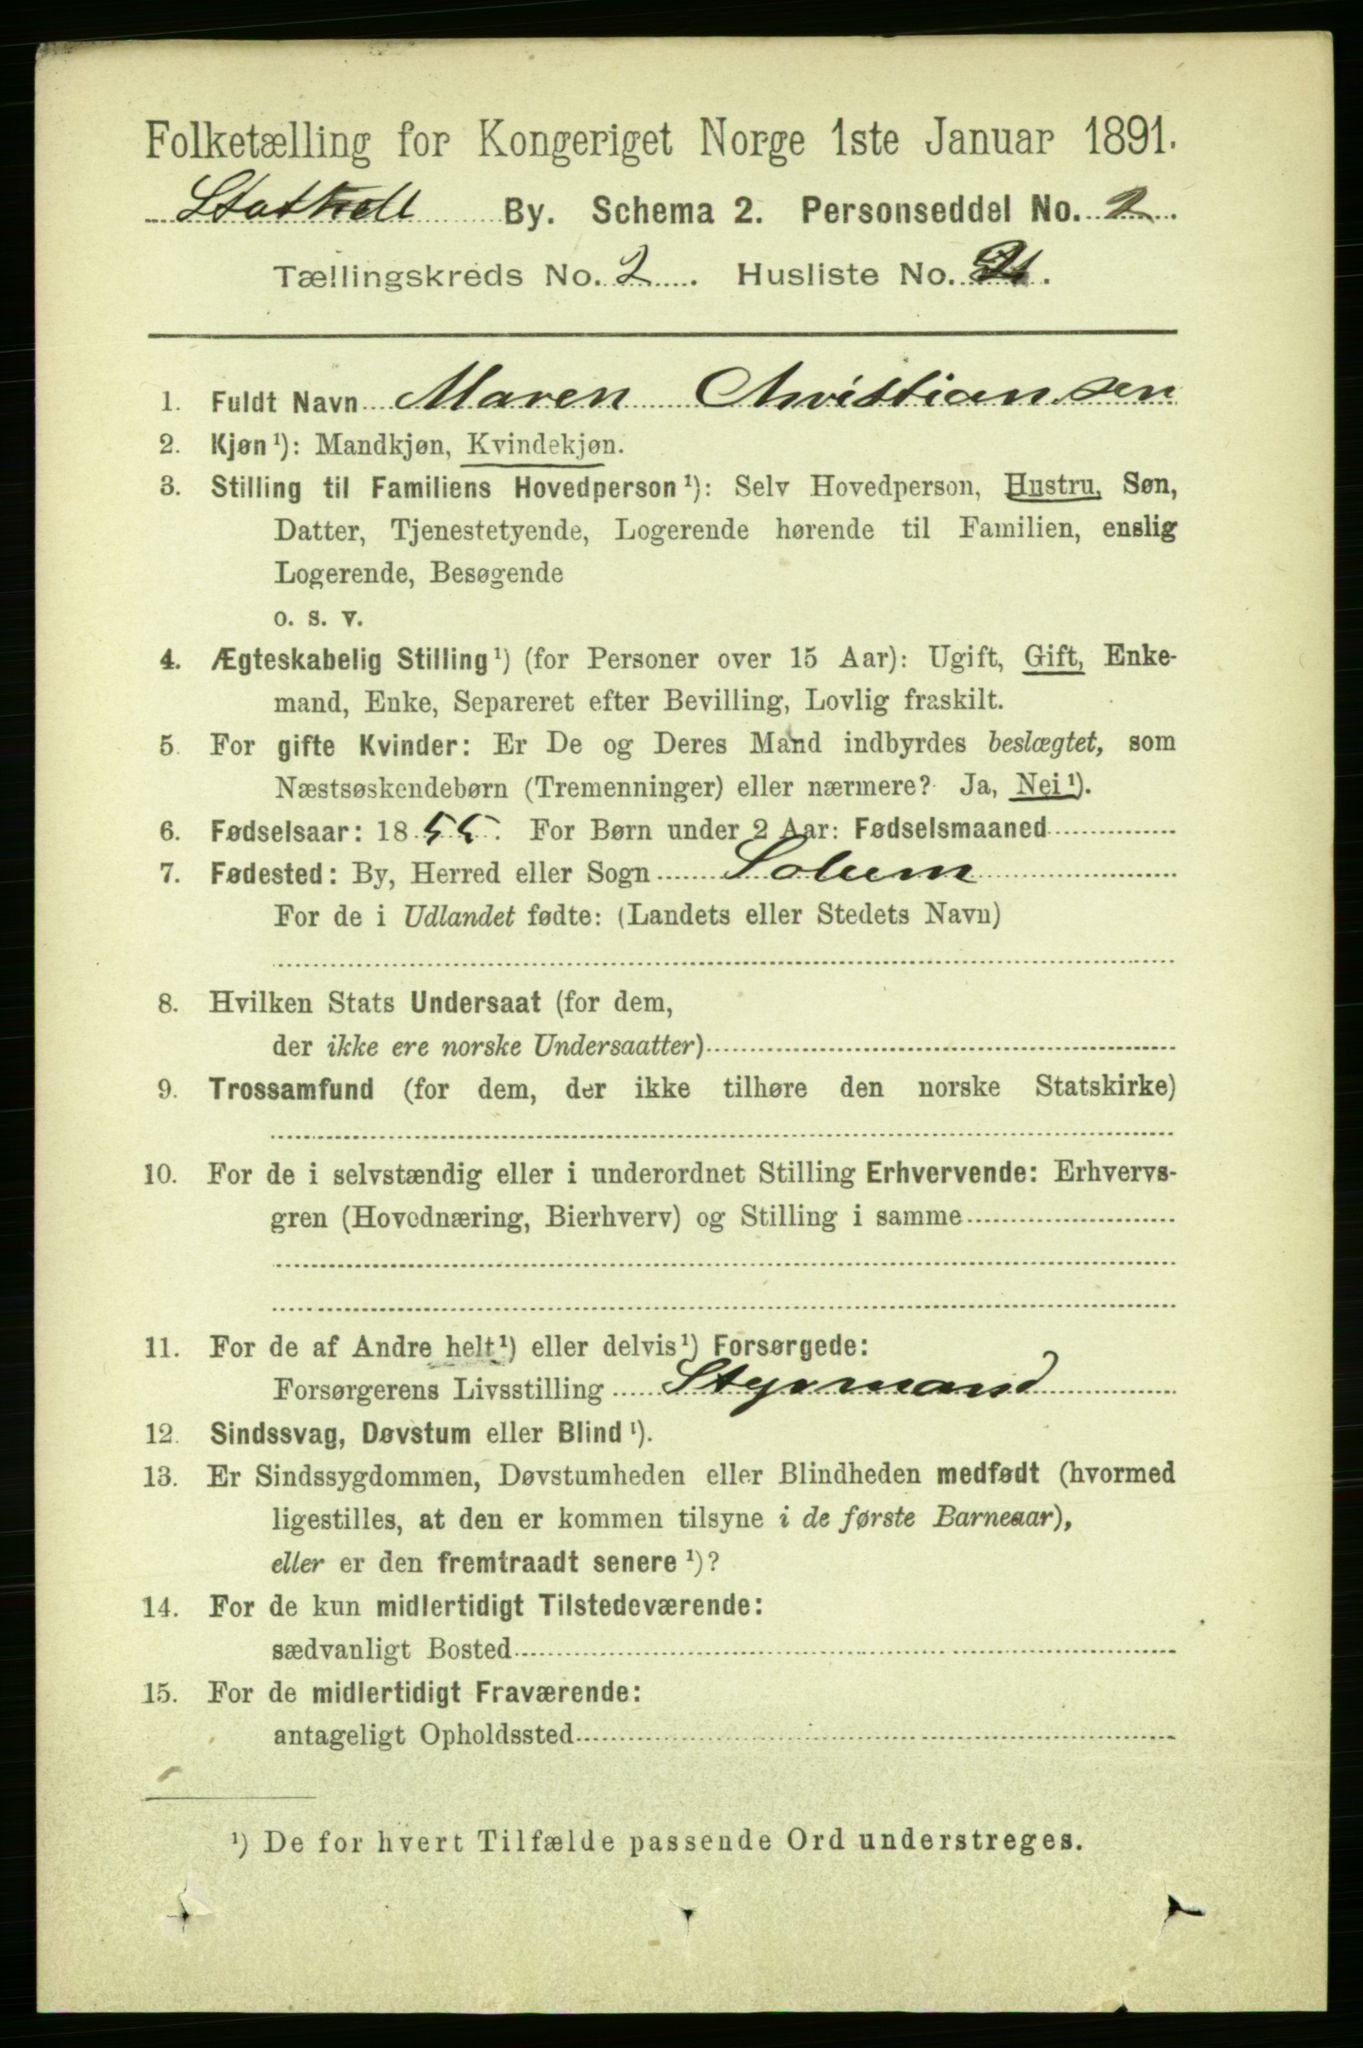 Folketælling for Kongeriget Norge 1ste Januar 1891.
Stathell By. Schema 2. Personseddel No. 2.
Tællingskreds No. 2. Husliste No.
1. Fuldt Navn Maren Christiansen
2. Kjøn¹): Mandkjøn, Kvindekjøn.
3. Stilling til Familiens Hovedperson¹): Selv Hovedperson, Hustru, Søn,
Datter, Tjenestetyende, Logerende hørende til Familien, enslig
Logerende, Besøgende
o. s. v.
4. Ægteskabelig Stilling¹) (for Personer over 15 Aar): Ugift, Gift, Enke-
mand, Enke, Separeret efter Bevilling, Lovlig fraskilt.
5. For gifte Kvinder: Er De og Deres Mand indbyrdes beslægtet, som
Næstsøskendebørn (Tremenninger) eller nærmere? Ja, Nei¹).
6. Fødselsaar: 1855. For Børn under 2 Aar: Fødselsmaaned
7. Fødested: By, Herred eller Sogn Solum
For de i Udlandet fødte: (Landets eller Stedets Navn)
8. Hvilken Stats Undersaat (for dem,
der ikke ere norske Undersaatter)
9. Trossamfund (for dem, der ikke tilhøre den norske Statskirke)
10. For de i selvstændig eller i underordnet Stilling Erhvervende: Erhvervs-
gren (Hovednæring, Bierhverv) og Stilling i samme
11. For de af Andre helt¹) eller delvis¹) Forsørgede:
Forsørgerens Livsstilling Styrmand
12. Sindssvag, Døvstum eller Blind¹).
13. Er Sindssygdommen, Døvstumheden eller Blindheden medfødt (hvormed
ligestilles, at den er kommen tilsyne i de første Barneaar),
eller er den fremtraadt senere¹)?
14. For de kun midlertidigt Tilstedeværende:
sædvanligt Bosted
15. For de midlertidigt Fraværende:
antageligt Opholdssted
¹) De for hvert Tilfælde passende Ord understreges.